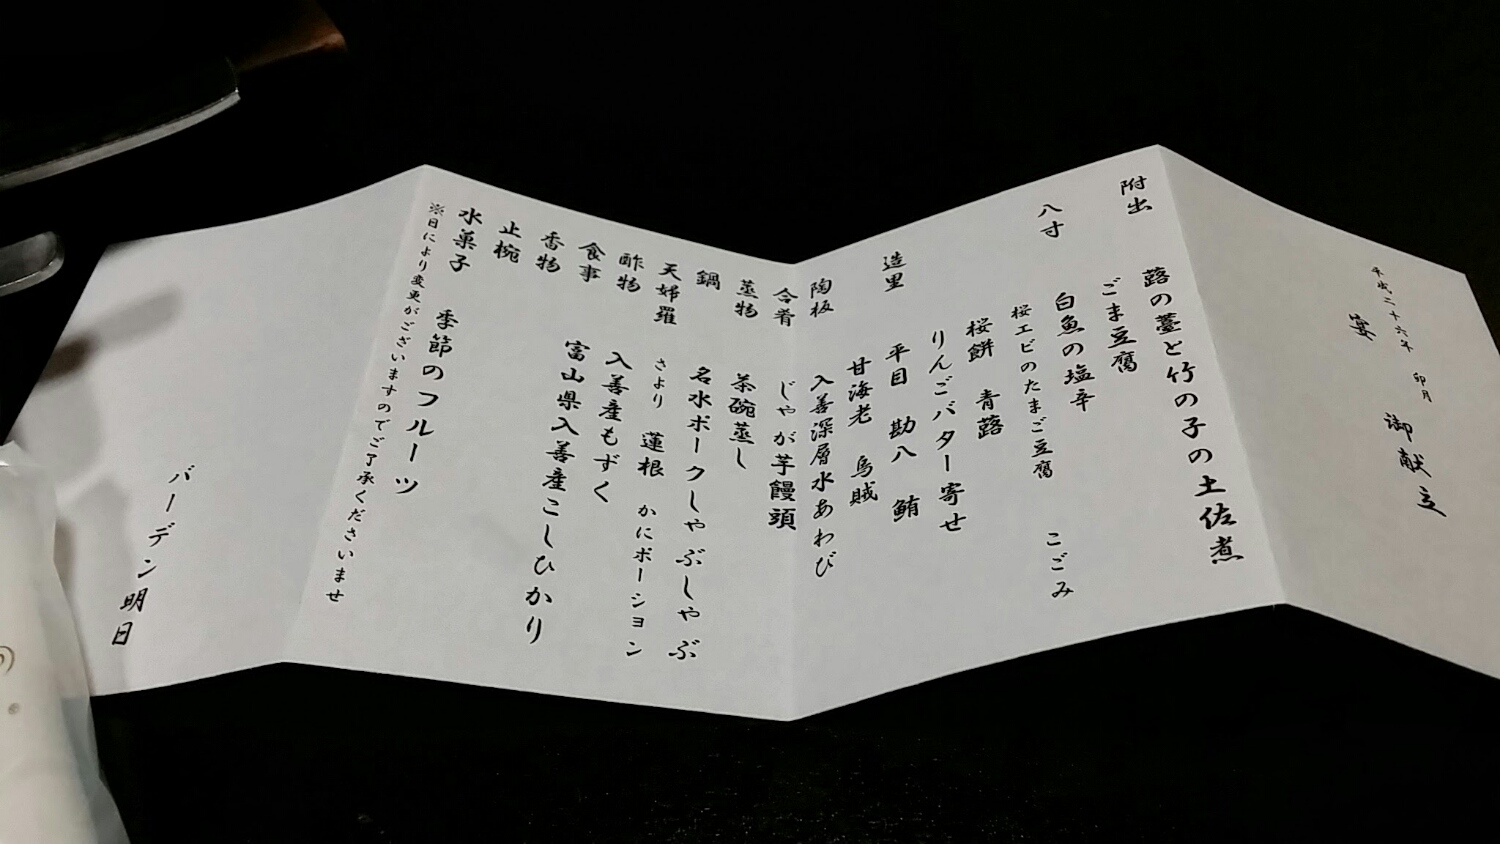 平成二十六年 卯月
宴 御献立
附出 蕗の薹と竹の子の土佐煮
ごま豆腐
八寸 白魚の塩辛 こごみ
桜エビのたまご豆腐
桜餅 青蕗
りんごバター寄せ
造里 平目 勘八 鮪
甘海老 烏賊
陶板 入善深層水あわび
合肴 じゃが芋饅頭
蒸物 茶碗蒸し
鍋 名水ポークしゃぶしゃぶ
天婦羅 さより 蓮根 かにポーション
酢物 入善産もずく
食事 富山県入善産こしひかり
香物
止椀
水菓子 季節のフルーツ
※日により変更がございますのでご了承くださいませ
バーデン明日